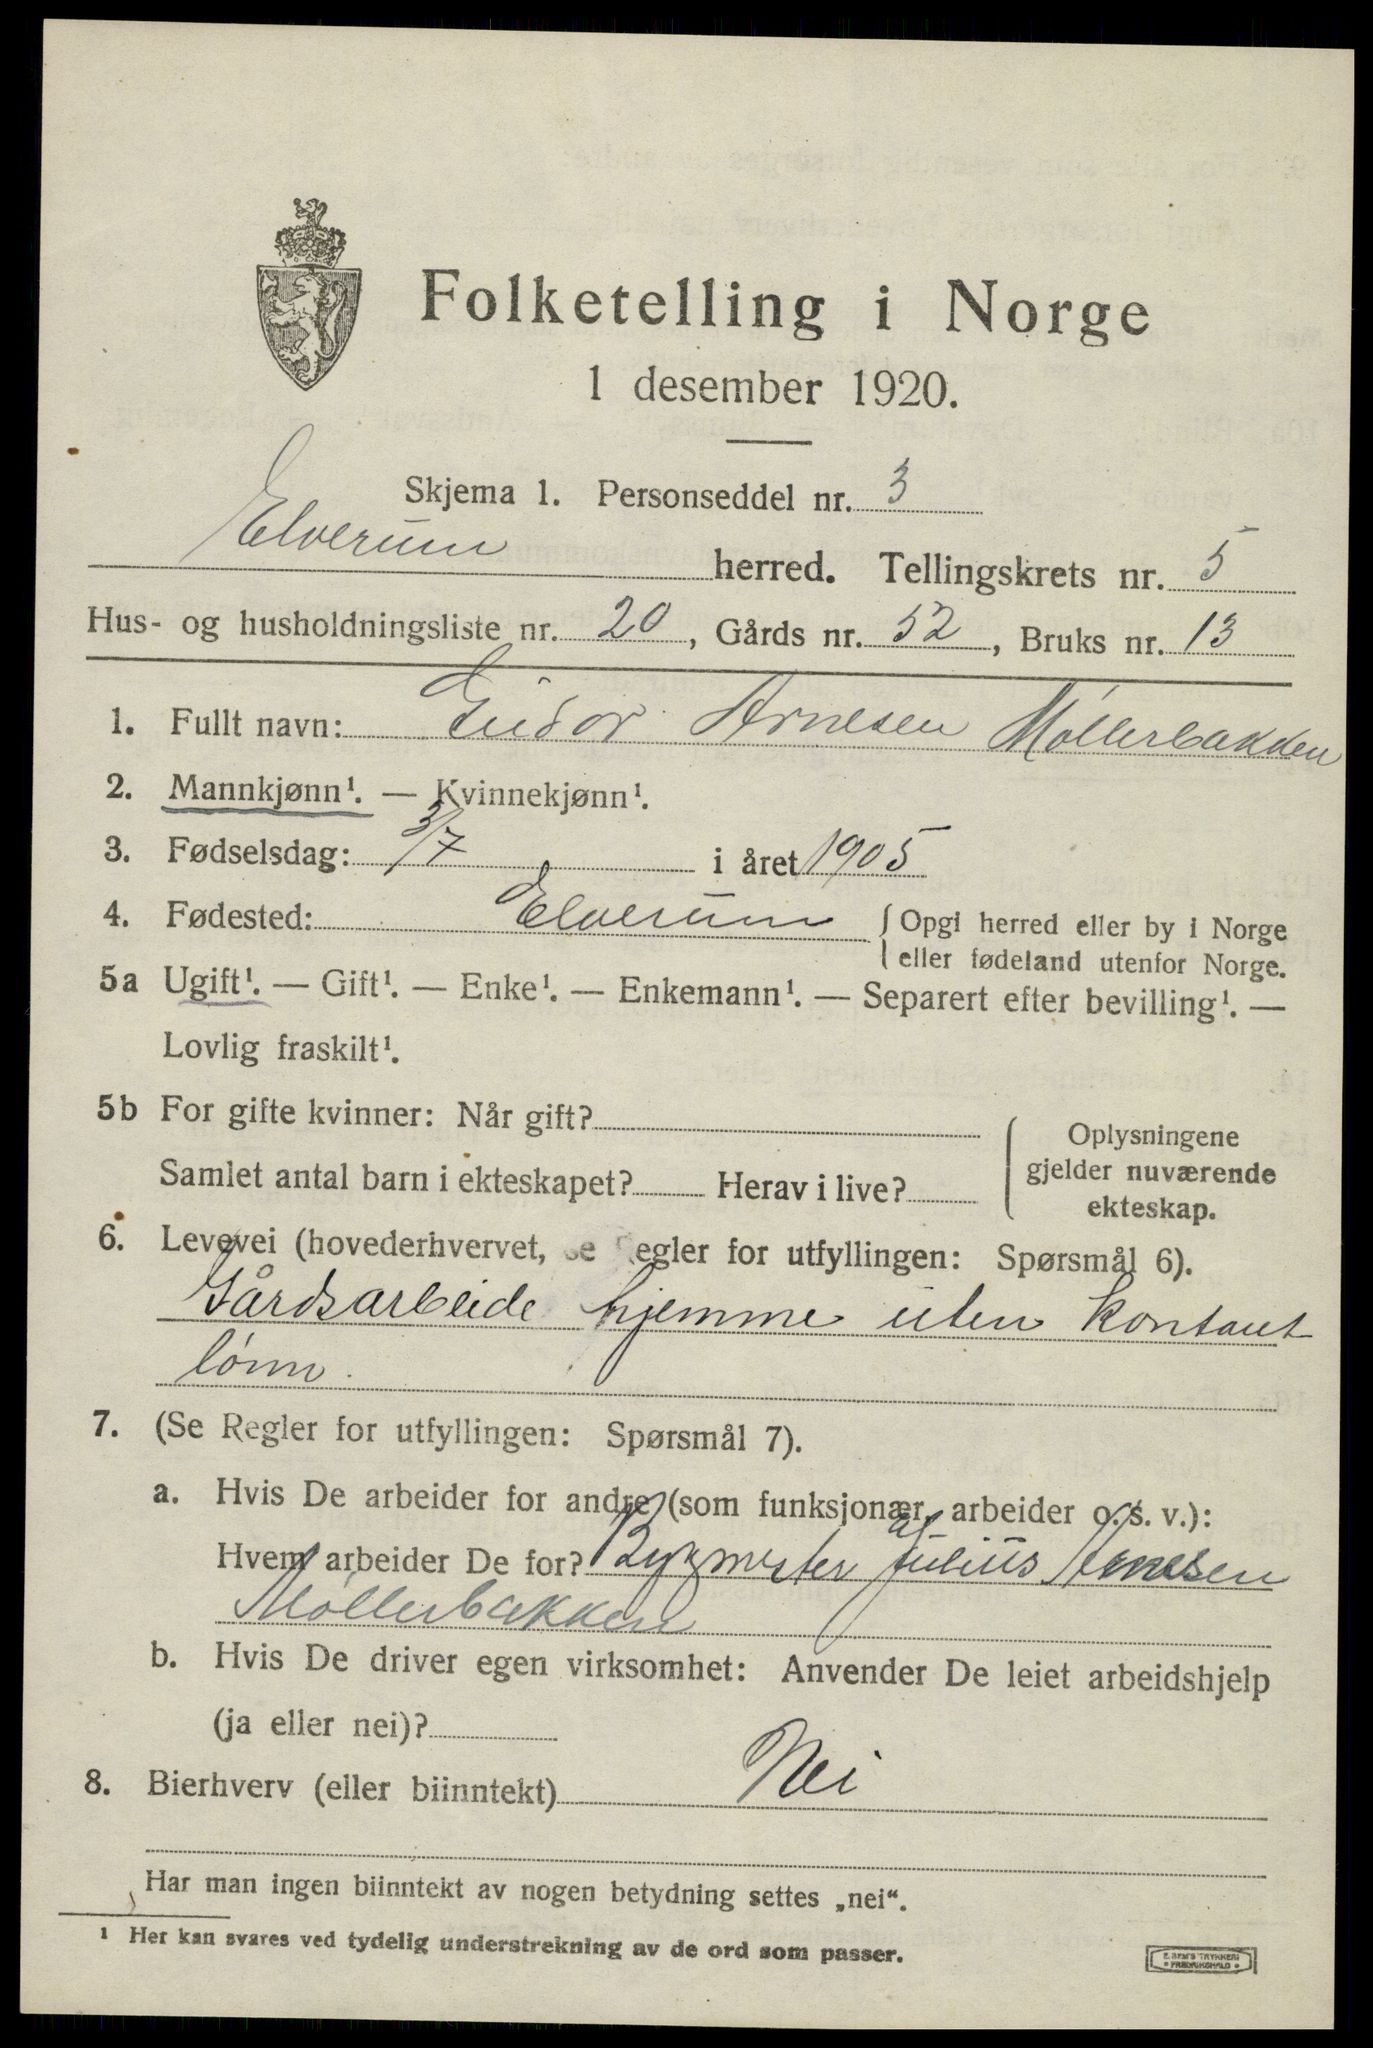 Folketelling i Norge
1 desember 1920.
Skjema 1. Personseddel nr. 3
Elverum herred. Tellingskrets nr. 5
Hus- og husholdningsliste nr. 20, Gårds nr. 52, Bruks nr. 13
1. Fullt navn: Eidor Arnesen Møllerbakken
2. Mannkjønn¹. — Kvinnekjønn¹.
3. Fødselsdag: 3/7 i året 1905
4. Fødested: Elverum { Opgi herred eller by i Norge
eller fødeland utenfor Norge.
5a Ugift¹. — Gift¹. — Enke¹. — Enkemann¹. — Separert efter bevilling¹. —
Lovlig fraskilt¹.
5b For gifte kvinner: Når gift?
Samlet antal barn i ekteskapet? Herav i live?
Oplysningene
gjelder nuværende
ekteskap.
6. Levevei (hovederhvervet, se Regler for utfyllingen: Spørsmål 6).
Gårdsarbeide hjemme uten kontant
lønn.
7. (Se Regler for utfyllingen: Spørsmål 7).
a. Hvis De arbeider for andre (som funksjonær, arbeider o. s. v.):
Hvem arbeider De for? Bygmester Julius Arnesen
Møllerbakken
b. Hvis De driver egen virksomhet: Anvender De leiet arbeidshjelp
(ja eller nei)?
8. Bierhverv (eller biinntekt) Nei
Har man ingen biinntekt av nogen betydning settes „nei“.
¹ Her kan svares ved tydelig understrekning av de ord som passer.
E. SEM'S TRYKKERI
FREDRIKSHALD